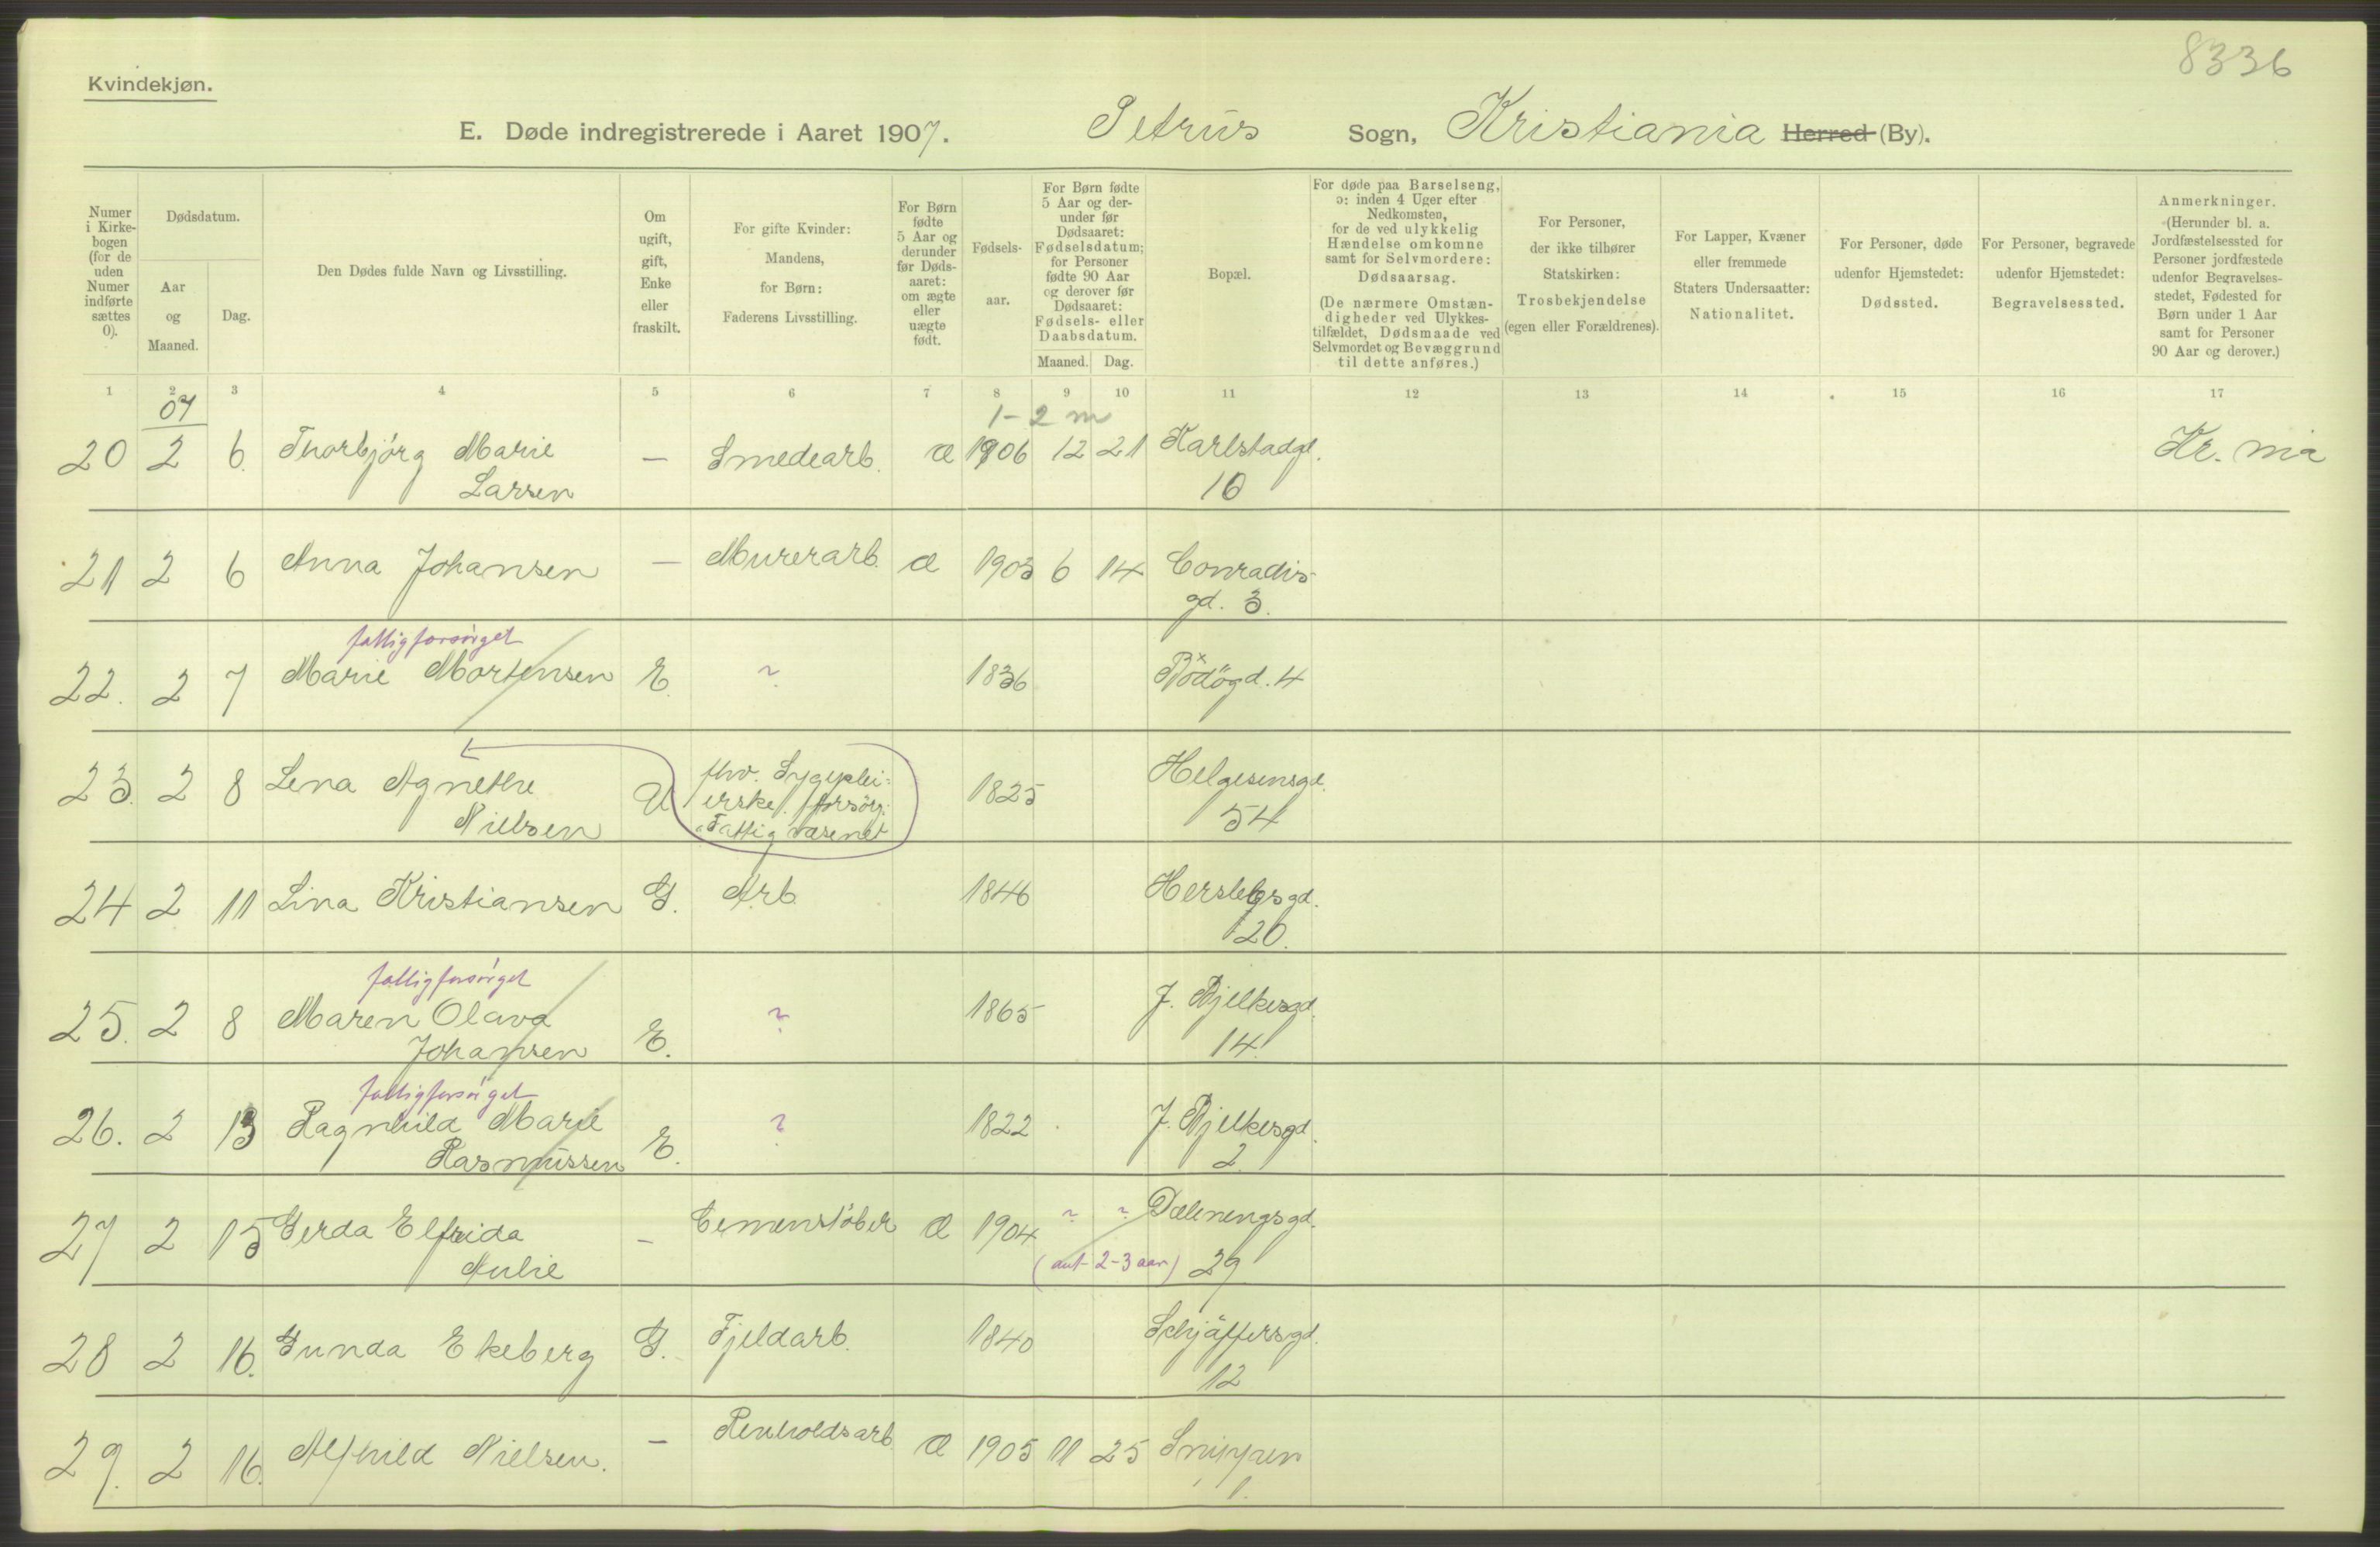 8336
Kvindekjøn.
E. Døde indregistrerede i Aaret 1907. Petrus Sogn, Kristiania Herred (By).
Numer i Kirkebogen (for de uden Numer indførte sættes 0).
Dødsdatum.
Aar og Maaned.
Dag.
Den Dødes fulde Navn og Livsstilling.
Om ugift, gift, Enke eller fraskilt.
For gifte Kvinder: Mandens, for Børn: Faderens Livsstilling.
For Børn fødte 5 Aar og derunder før Dødsaaret: om ægte eller uægte født.
Fødselsaar.
For Børn fødte 5 Aar og derunder før Dødsaaret: Fødselsdatum; for Personer fødte 90 Aar og derover før Dødsaaret: Fødsels- eller Daabsdatum.
Maaned. Dag.
Bopæl.
For døde paa Barselseng, ɔ: inden 4 Uger efter Nedkomsten, for de ved ulykkelig Hændelse omkomne samt for Selvmordere: Dødsaarsag.
(De nærmere Omstændigheder ved Ulykkestilfældet, Dødsmaade ved Selvmordet og Bevæggrund til dette anføres.)
For Personer, der ikke tilhører Statskirken: Trosbekjendelse (egen eller Forældrenes).
For Lapper, Kvæner eller fremmede Staters Undersaatter: Nationalitet.
For Personer, døde udenfor Hjemstedet: Dødssted.
For Personer, begravede udenfor Hjemstedet: Begravelsessted.
Anmerkninger. (Herunder bl. a. Jordfæstelsessted for Personer jordfæstede udenfor Begravelsesstedet, Fødested for Børn under 1 Aar samt for Personer 90 Aar og derover.)
1 2 3 4 5 6 7 8 9 10 11 12 13 14 15 16 17
07 1-2 m
20 2 6. Thorbjörg Marie — Smedearb. Æ 1906 12 21 Karlstadgd. Kr. nia
Larsen 10
21 2 6 Anna Johansen — Murerarb. Æ 1903 6 14 Conradis
gd. 3.
fattigforsörget
22. 2 7 Marie Mortensen E. ? 1836 Bödögd. 4
23. 2 8 Lena Agnethe U fhv. Sygeplei= 1825 Helgesensgd.
erske, forsörg.
Nielsen a Fattigvæsenet 54
24 2 11 Lina Kristiansen G. Arb. 1846 Herslebsgd.
20.
fattigforsörget
25. 2 8 Maren Olava ? 1865 J. Bjelkesgd.
Johansen E. 14.
fattigforsörget
26. 2 13 Ragnhild Marie ? 1822 J. Bjelkesgd.
Rasmussen E. 2.
27 2 15 Gerda Elfrida — Cementstöber Æ 1904 ? ? Dælenengsgd.
Aulie (ant. 2-3 aar) 29
28 2 16. Gunda Ekeberg G. Fjeldarb. 1840 Schjäffersgd.
12
29. 2 16. Alfhild Nielsen. — Renholdsarb. Æ 1905 11 25 Snippen
1.